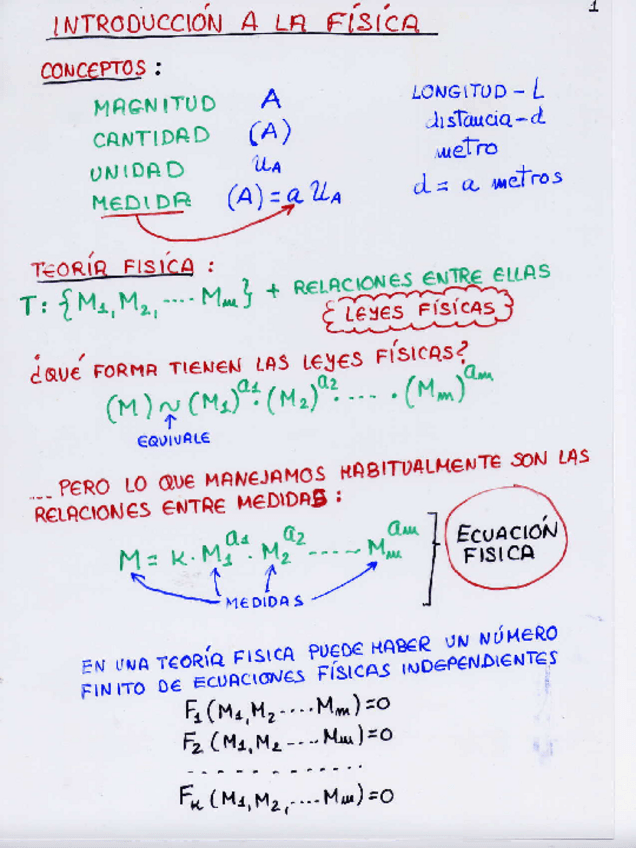 1
INTRODUCCIÓN A LA FÍSICA
CONCEPTOS:
MAGNITUD A
CANTIDAD (A)
UNIDAD U_A
MEDIDA (A) = a U_A
LONGITUD - L
distancia - d
metro
d = a metros
TEORÍA FISICA:
T: {M₁, M₂, ---- Mₘ} + RELACIONES ENTRE ELLAS
LEYES FÍSICAS
¿QUÉ FORMA TIENEN LAS LEYES FÍSICAS?
(M) ~ (M₁)^a₁ · (M₂)^a₂ · ---- · (Mₘ)^aₘ
EQUIVALE
... PERO LO QUE MANEJAMOS HABITUALMENTE SON LAS
RELACIONES ENTRE MEDIDAS:
M = K · M₁^a₁ · M₂^a₂ ----- Mₘ^aₘ
ECUACIÓN
FISICA
MEDIDAS
EN UNA TEORÍA FISICA PUEDE HABER UN NÚMERO
FINITO DE ECUACIONES FÍSICAS INDEPENDIENTES
F₁ (M₁, M₂ ---- Mₘ) = 0
F₂ (M₁, M₂ ---- Mₘ) = 0
- - - - - - - - - - - -
Fₖ (M₁, M₂, ---- Mₘ) = 0